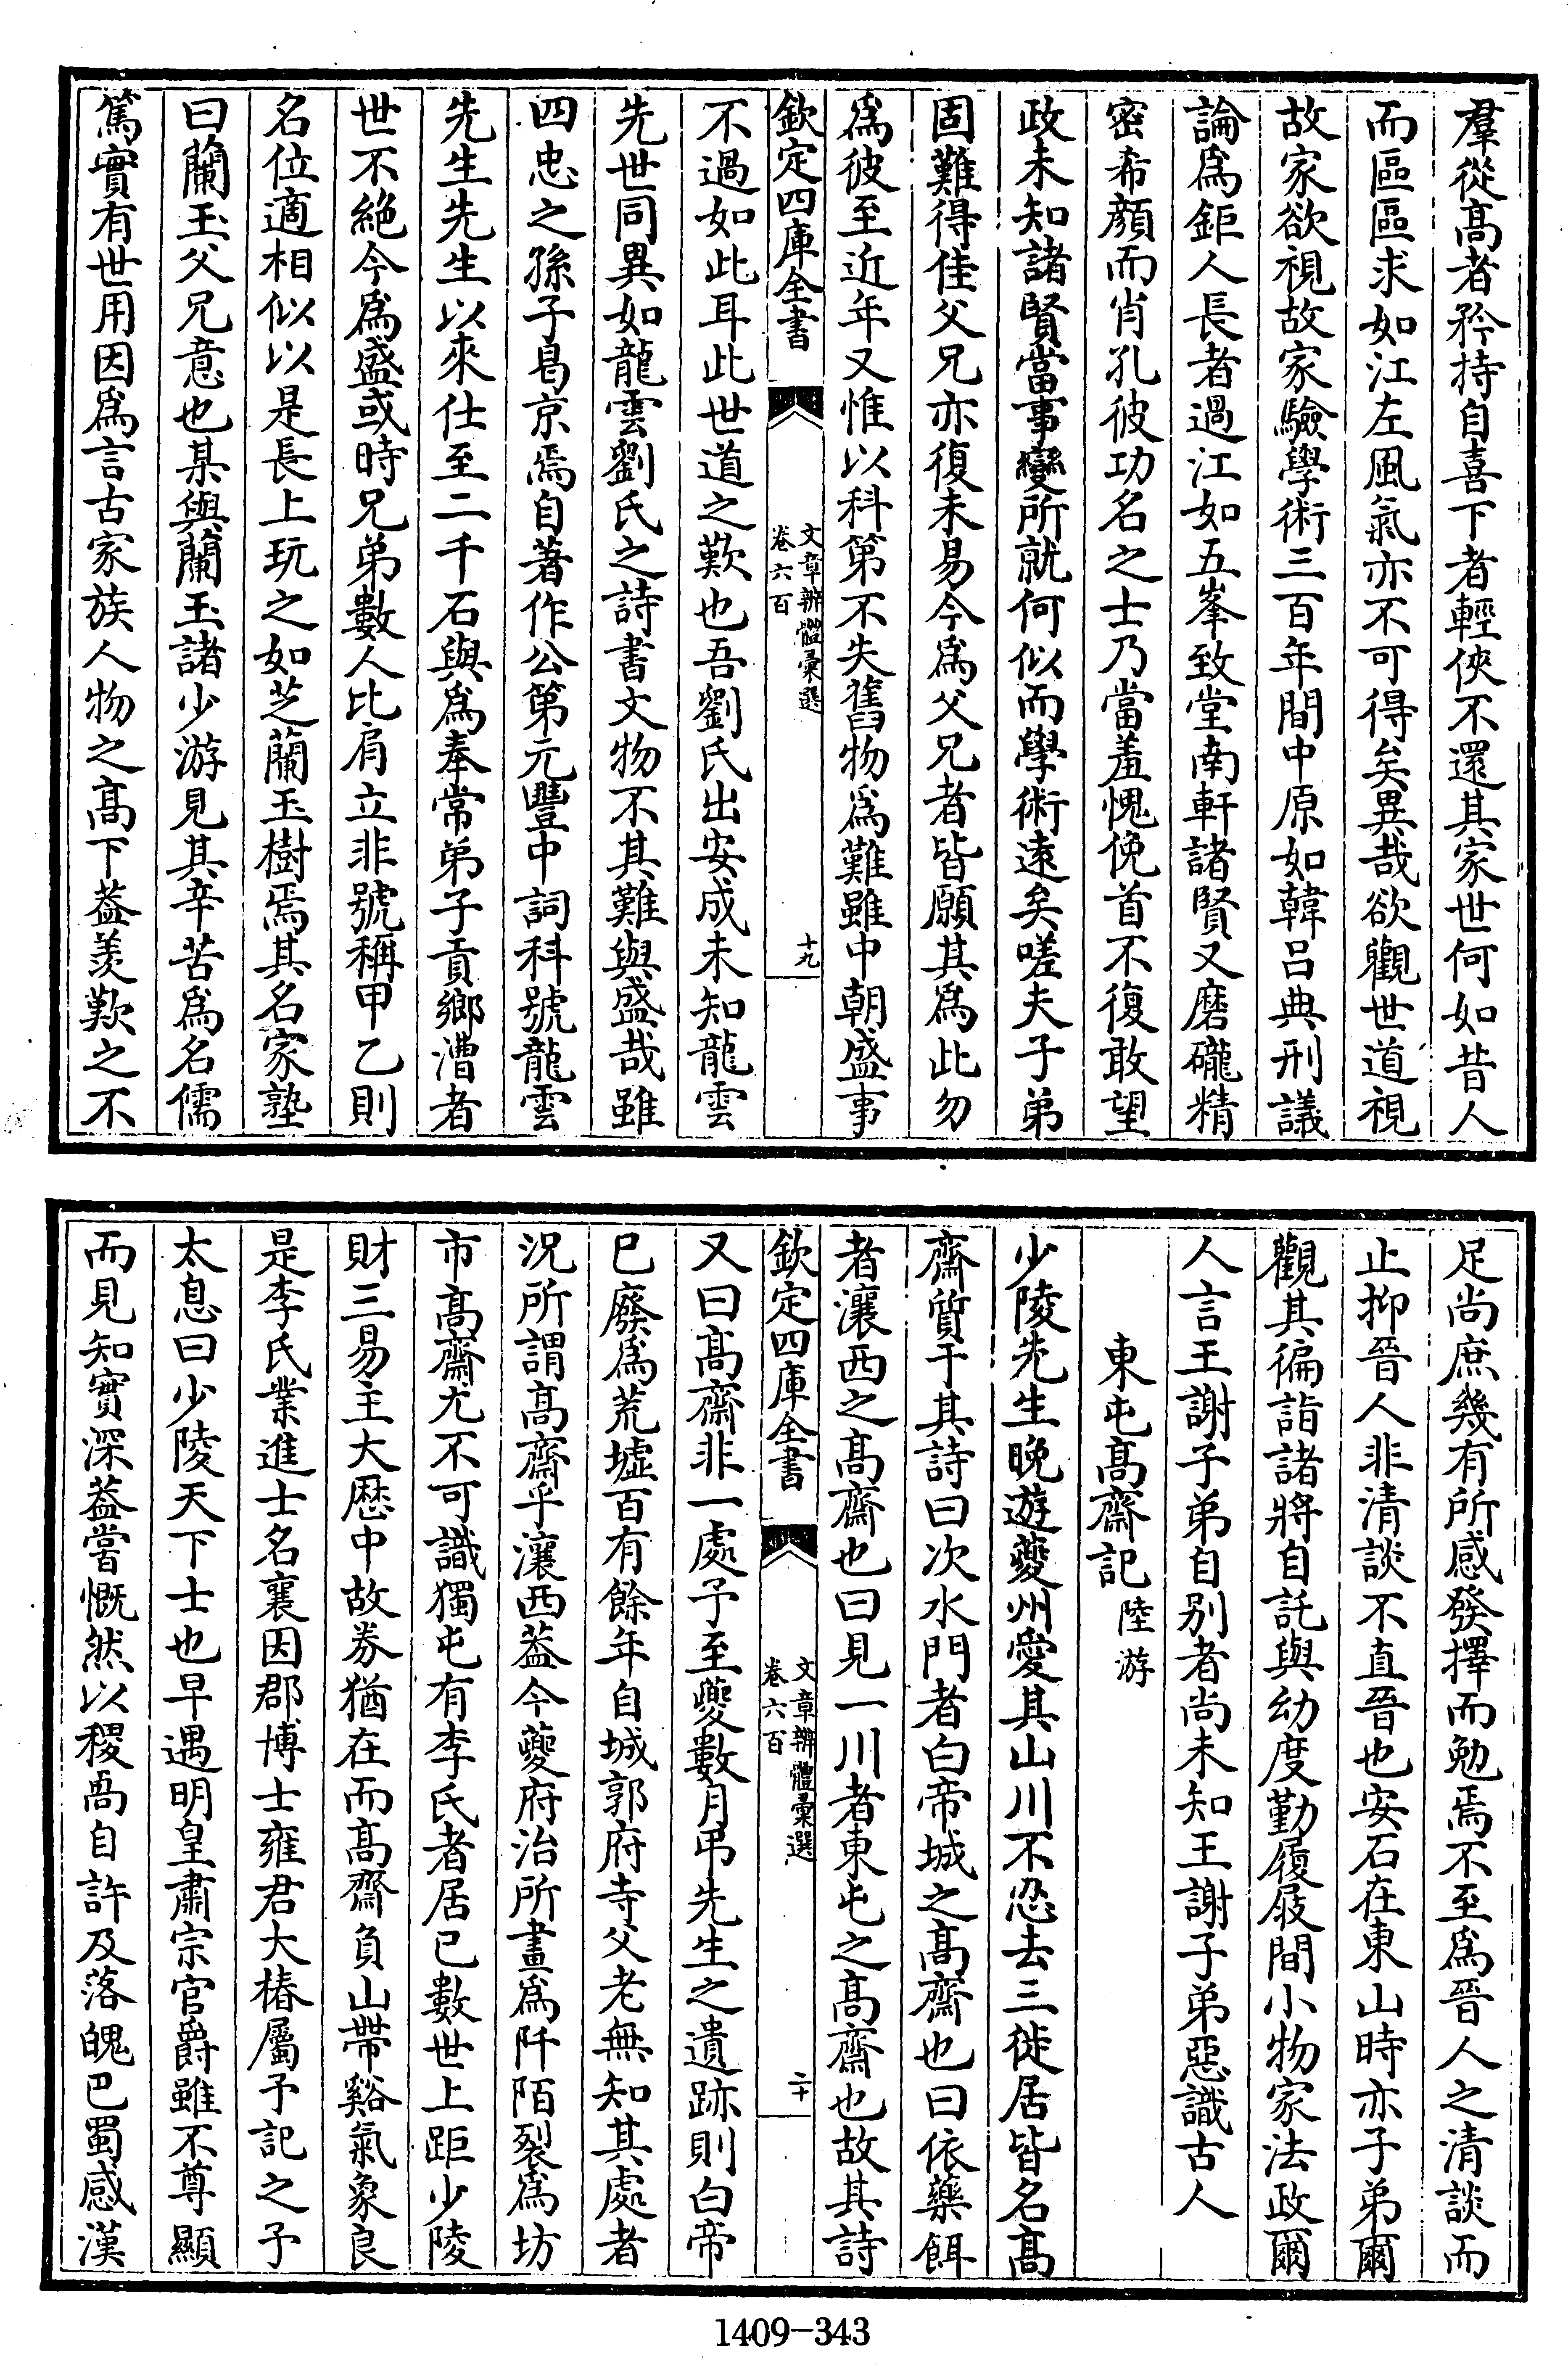 羣從髙者矜持自喜下者輕俠不還其家世何如昔人
而區區求如江左風氣亦不可得矣異哉欲觀世道視
故家欲視故家驗學術三百年間中原如韓吕典刑議
論爲鉅人長者過江如五峯致堂南軒諸賢又磨礲精
密希顔而肖孔彼功名之士乃當羞愧俛首不復敢望
政未知諸賢當事變所就何似而學術逺矣嗟夫子弟
固難得佳父兄亦復未易今爲父兄者皆願其爲此勿
爲彼至近年又惟以科第不失舊物爲難雖中朝盛事
欽定四庫全書
文章辨體彙選
卷六百
十九
不過如此耳此世道之歎也吾劉氏出安成未知龍雲
先世同異如龍雲劉氏之詩書文物不其難與盛哉雖
四忠之孫子曷京焉自著作公第元豐中詞科號龍雲
先生先生以來仕至二千石與爲奉常弟子貢鄉漕者
世不絶今爲盛或時兄弟數人比肩立非號稱甲乙則
名位適相似以是長上玩之如芝蘭玉樹焉其名家塾
曰蘭玉父兄意也某與蘭玉諸少游見其辛苦爲名儒
篤實有世用因爲言古家族人物之髙下葢羨歎之不
足尚庶幾有所感發擇而勉焉不至爲晉人之清談而
止抑晉人非清談不直晉也安石在東山時亦子弟爾
觀其徧詣諸將自託與幼度勤履屐間小物家法政爾
人言王謝子弟自别者尚未知王謝子弟惡識古人
東屯髙齋記 陸游
少陵先生晚遊夔州愛其山川不忍去三徙居皆名髙
齋質于其詩曰次水門者白帝城之髙齋也曰依藥餌
者瀼西之髙齋也曰見一川者東屯之髙齋也故其詩
欽定四庫全書
文章辨體彙選
卷六百
二十
又曰髙齋非一處予至夔數月弔先生之遺跡則白帝
已廢爲荒墟百有餘年自城郭府寺父老無知其處者
況所謂髙齋乎瀼西葢今夔府治所畫爲阡陌裂爲坊
市髙齋尤不可識獨屯有李氏者居已數世上距少陵
財三易主大厯中故券猶在而髙齋負山帶谿氣象良
是李氏業進士名襄因郡博士雍君大椿屬予記之予
太息曰少陵天下士也早遇明皇肅宗官爵雖不尊顯
而見知實深葢嘗慨然以稷卨自許及落魄巴蜀感漢
1409-343